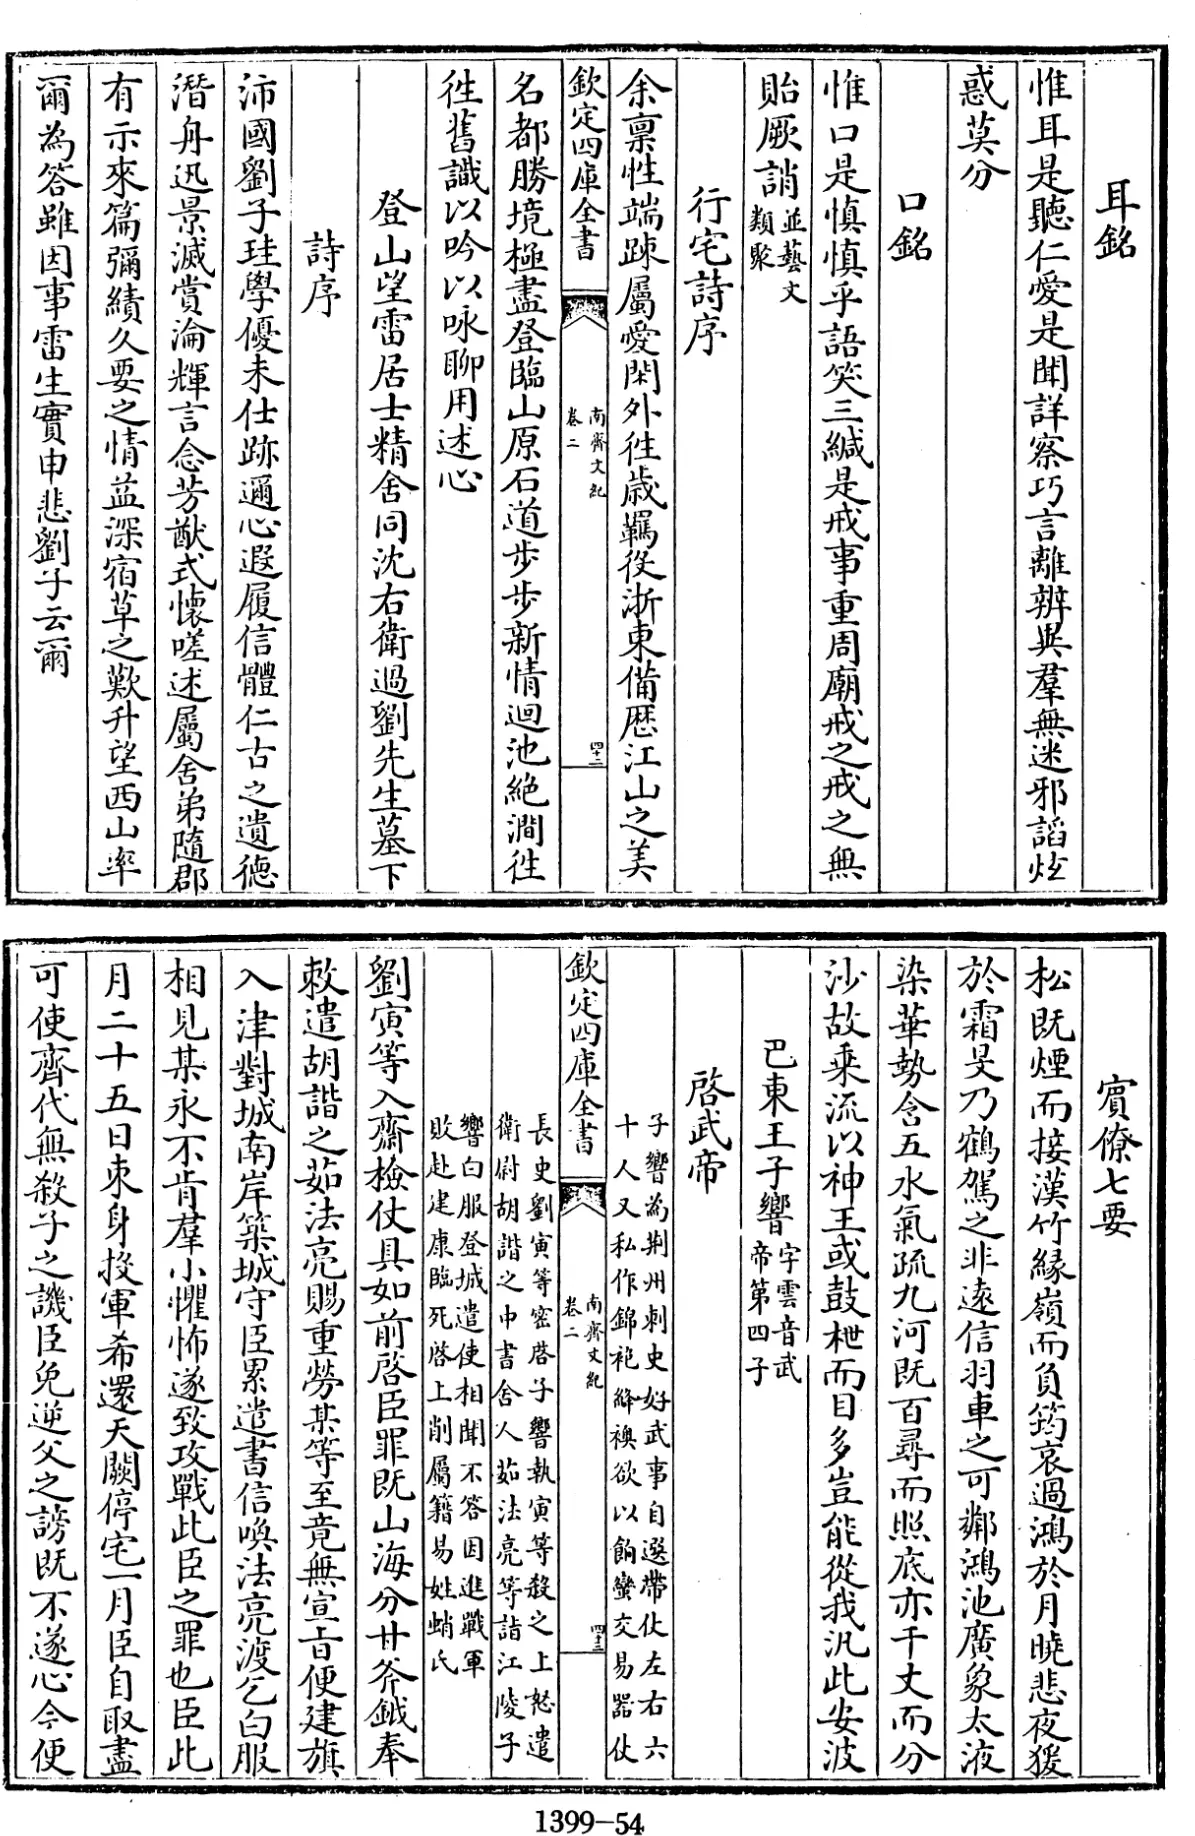 耳銘
惟耳是聽仁愛是聞詳察巧言離辨異羣無迷邪諂炫
惑莫分
口銘
惟口是慎慎乎語笑三緘是戒事重周廟戒之戒之無
貽厥誚並藝文類聚
行宅詩序
余禀性端疎屬愛閑外徃歳羈役浙東備歴江山之美
欽定四庫全書
南齊文紀
卷二
四十二
名都勝境極盡登臨山原石道步步新情迴池絶澗徃
徃舊識以吟以咏聊用述心
登山望雷居士精舍同沈右衛過劉先生墓下
詩序
沛國劉子珪學優未仕跡邇心遐履信體仁古之遺德
潛舟迅景滅賞淪輝言念芳猷式懷嗟述屬舍弟隨郡
有示來篇彌績久要之情益深宿草之歎升望西山率
爾為答雖因事雷生實申悲劉子云爾
賓僚七要
松既煙而接漢竹緣嶺而負筠哀過鴻於月曉悲夜猨
於霜旻乃鶴駕之非遠信羽車之可鄰鴻池廣象太液
染華勢含五水氣疏九河既百尋而照底亦千丈而分
沙故乘流以神王或鼓枻而目多豈能從我汎此安波
巴東王子響字雲音武帝第四子
啓武帝
子響為荆州刺史好武事自選帶仗左右六
十人又私作錦袍絳襖欲以餉蠻交易器仗
欽定四庫全書
南齊文紀
卷二
四十三
長史劉寅等密啓子響執寅等殺之上怒遣
衛尉胡諧之中書舍人茹法亮等詣江陵子
響白服登城遣使相聞不答因進戰軍
敗赴建康臨死啓上削屬籍易姓蛸氏
劉寅等入齋檢仗具如前啓臣罪既山海分甘斧鉞奉
敕遣胡諧之茹法亮賜重勞某等至竟無宣旨便建旗
入津對城南岸築城守臣累遣書信喚法亮渡乞白服
相見某永不肯羣小懼怖遂致攻戰此臣之罪也臣此
月二十五日束身投軍希還天闕停宅一月臣自取盡
可使齊代無殺子之譏臣免逆父之謗既不遂心今便
1399-54